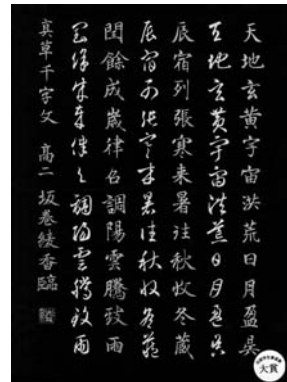 天地玄黄宇宙洪荒日月盈昃
天地玄黄宇宙洪荒日月盈昃
辰宿列張寒来暑往秋收冬蔵
辰宿列張寒来暑往秋收冬蔵
閏餘成歳律召調陽雲騰致雨
閏餘成歳律召調陽雲騰致雨
真草千字文 高二 坂巻綾香臨
大賞